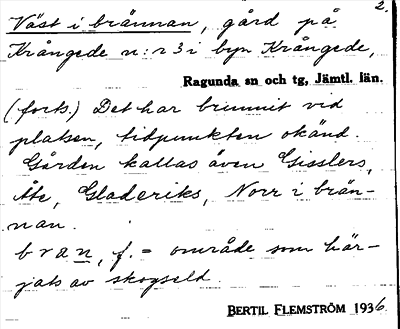 2.
Väst i brännan, gård på
Krångede n:r 3 i byn Krångede,
Ragunda sn och tg, Jämtl. län.
(forts.) Det har brunnit vid
platsen, tidpunkten okänd.
Gården kallas även Gisslers,
Åte, Gladeriks, Norr i brän-
nan.
bran, f. = område som här-
jats av skogseld.
BERTIL FLEMSTRÖM 1936